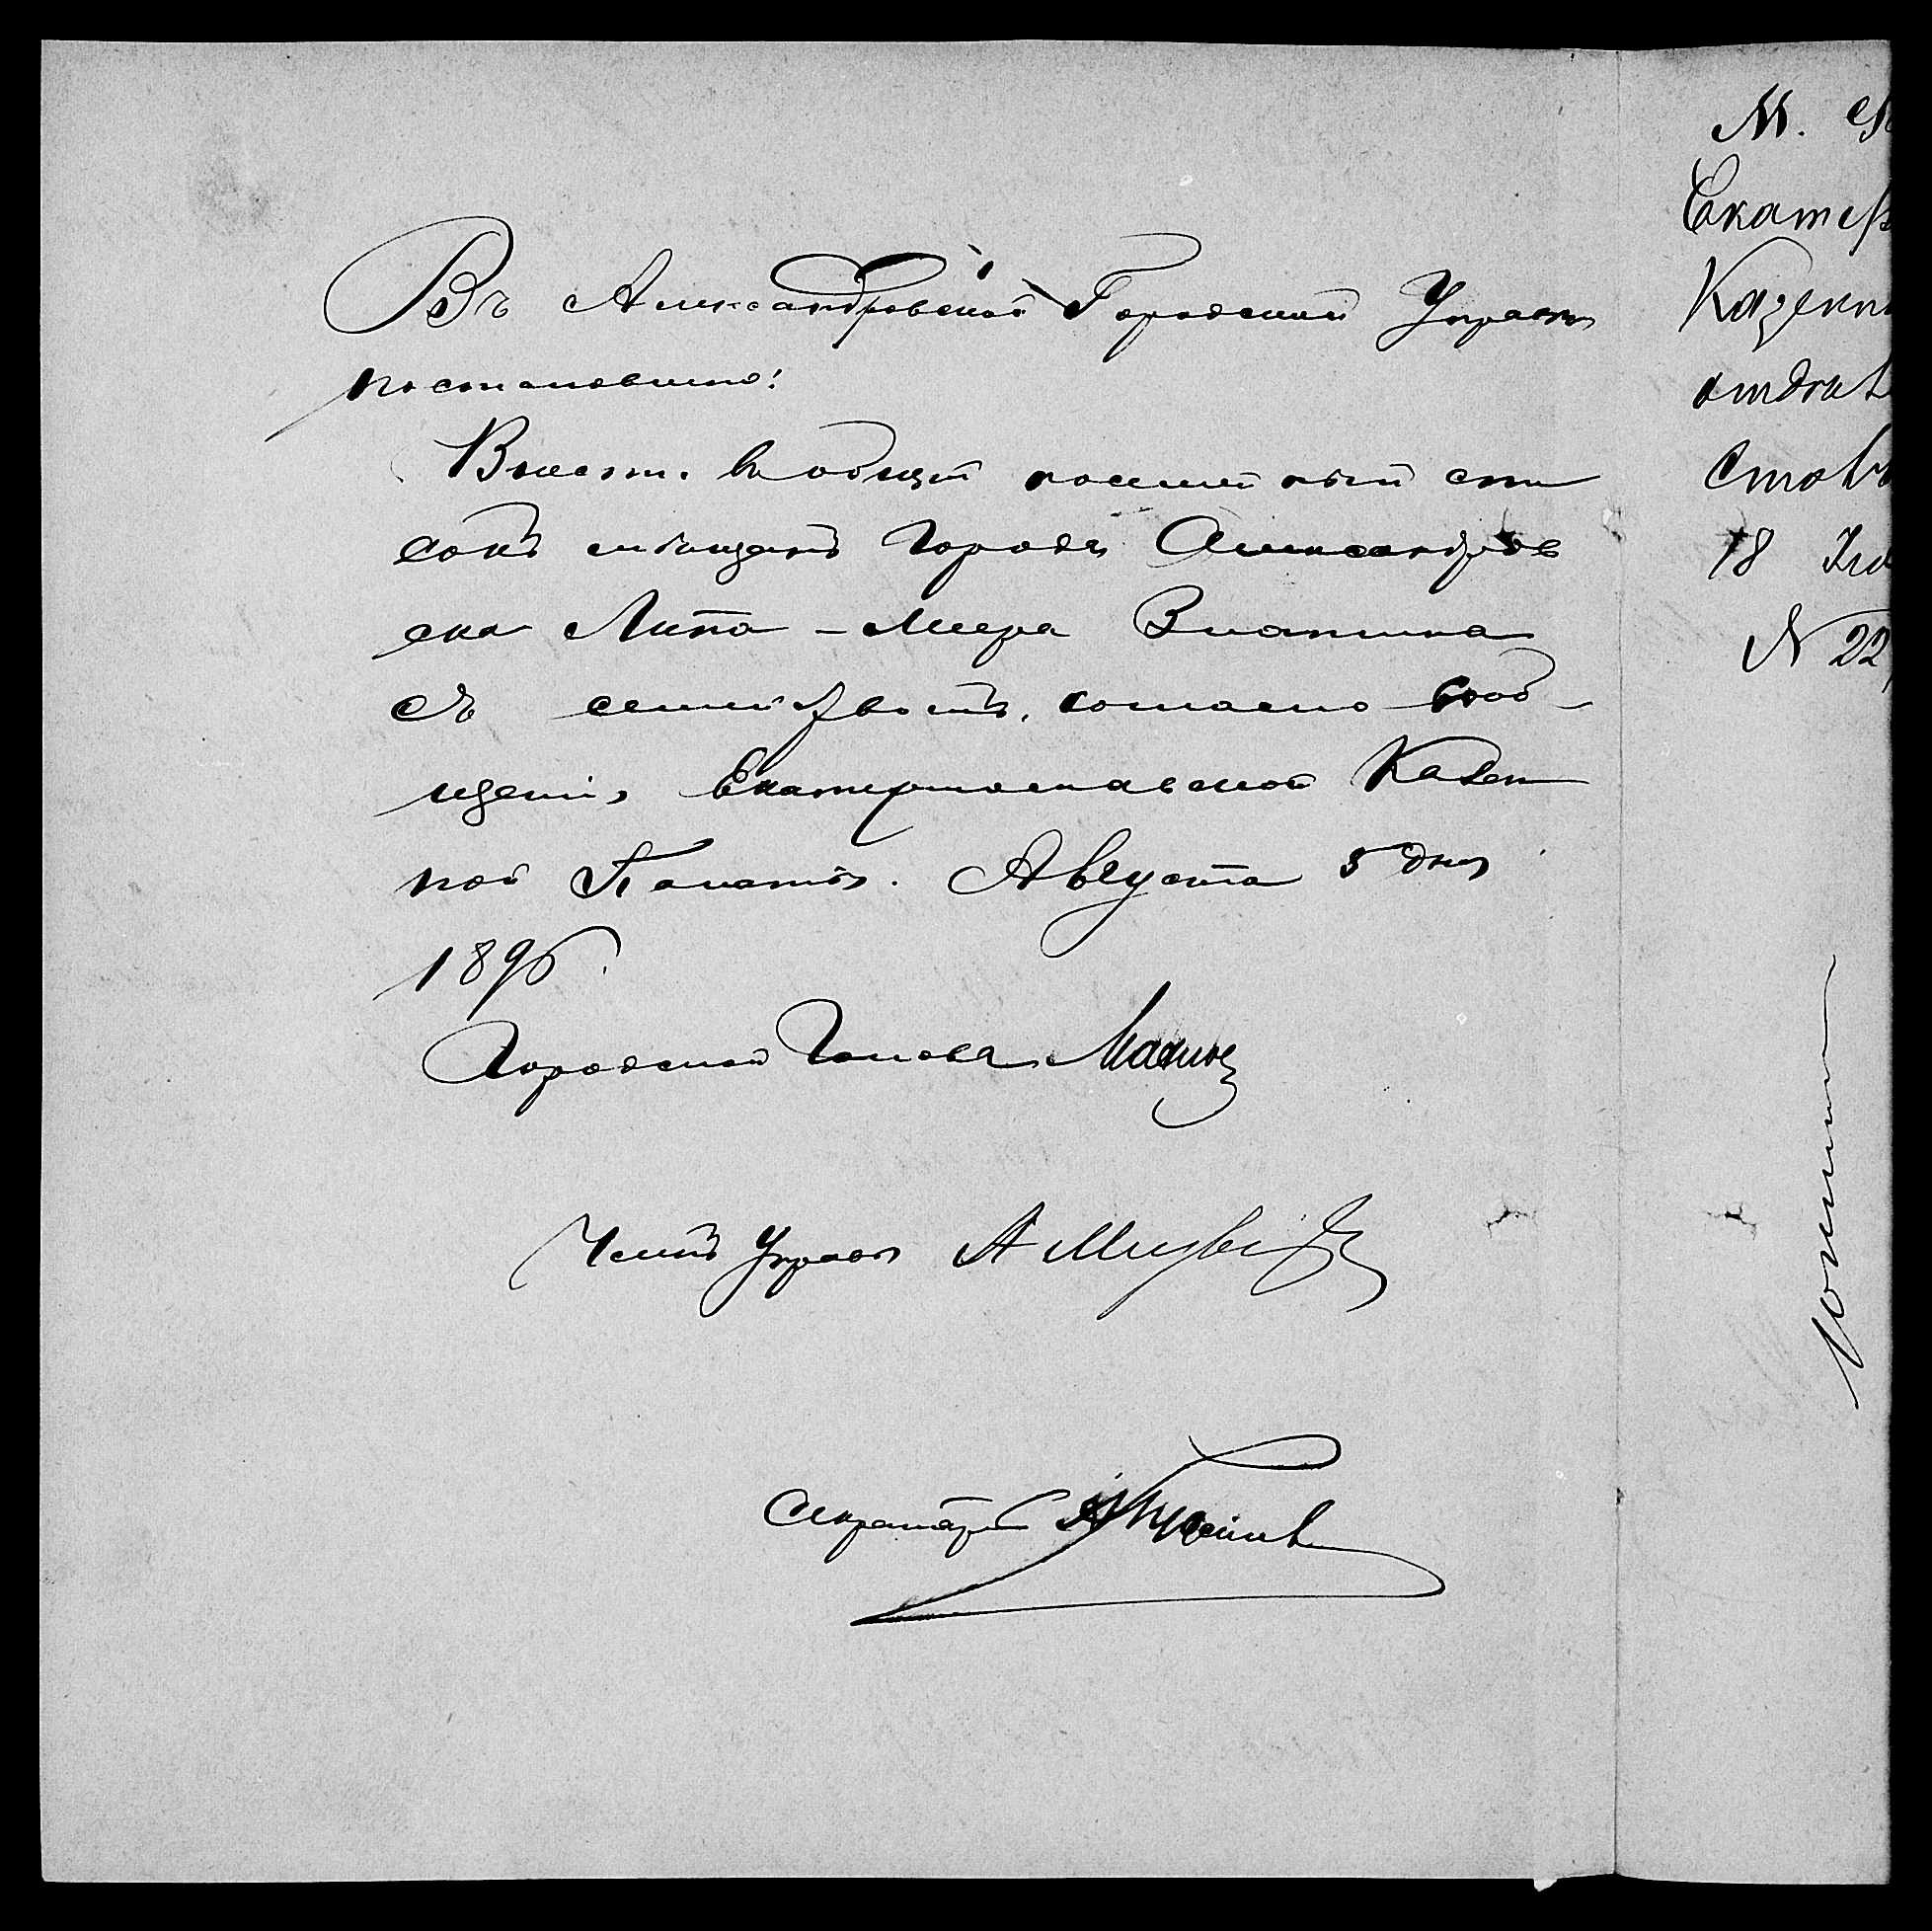 Въ Александровской Городской Управѣ
постановлено:
Внести въ общій посемейный спи
сокъ мѣщанъ города Александров
ска Лита-Меера Златкина
съ семействомъ, согласно сооб-
щенія Екатеринославской Казен
ной Палаты. Августа 5 дня
1896 г.
Городской Голова
Членъ Управы А
Секретарь
М.
Екатер
Казенн
отдѣл
Столъ
18
N 22